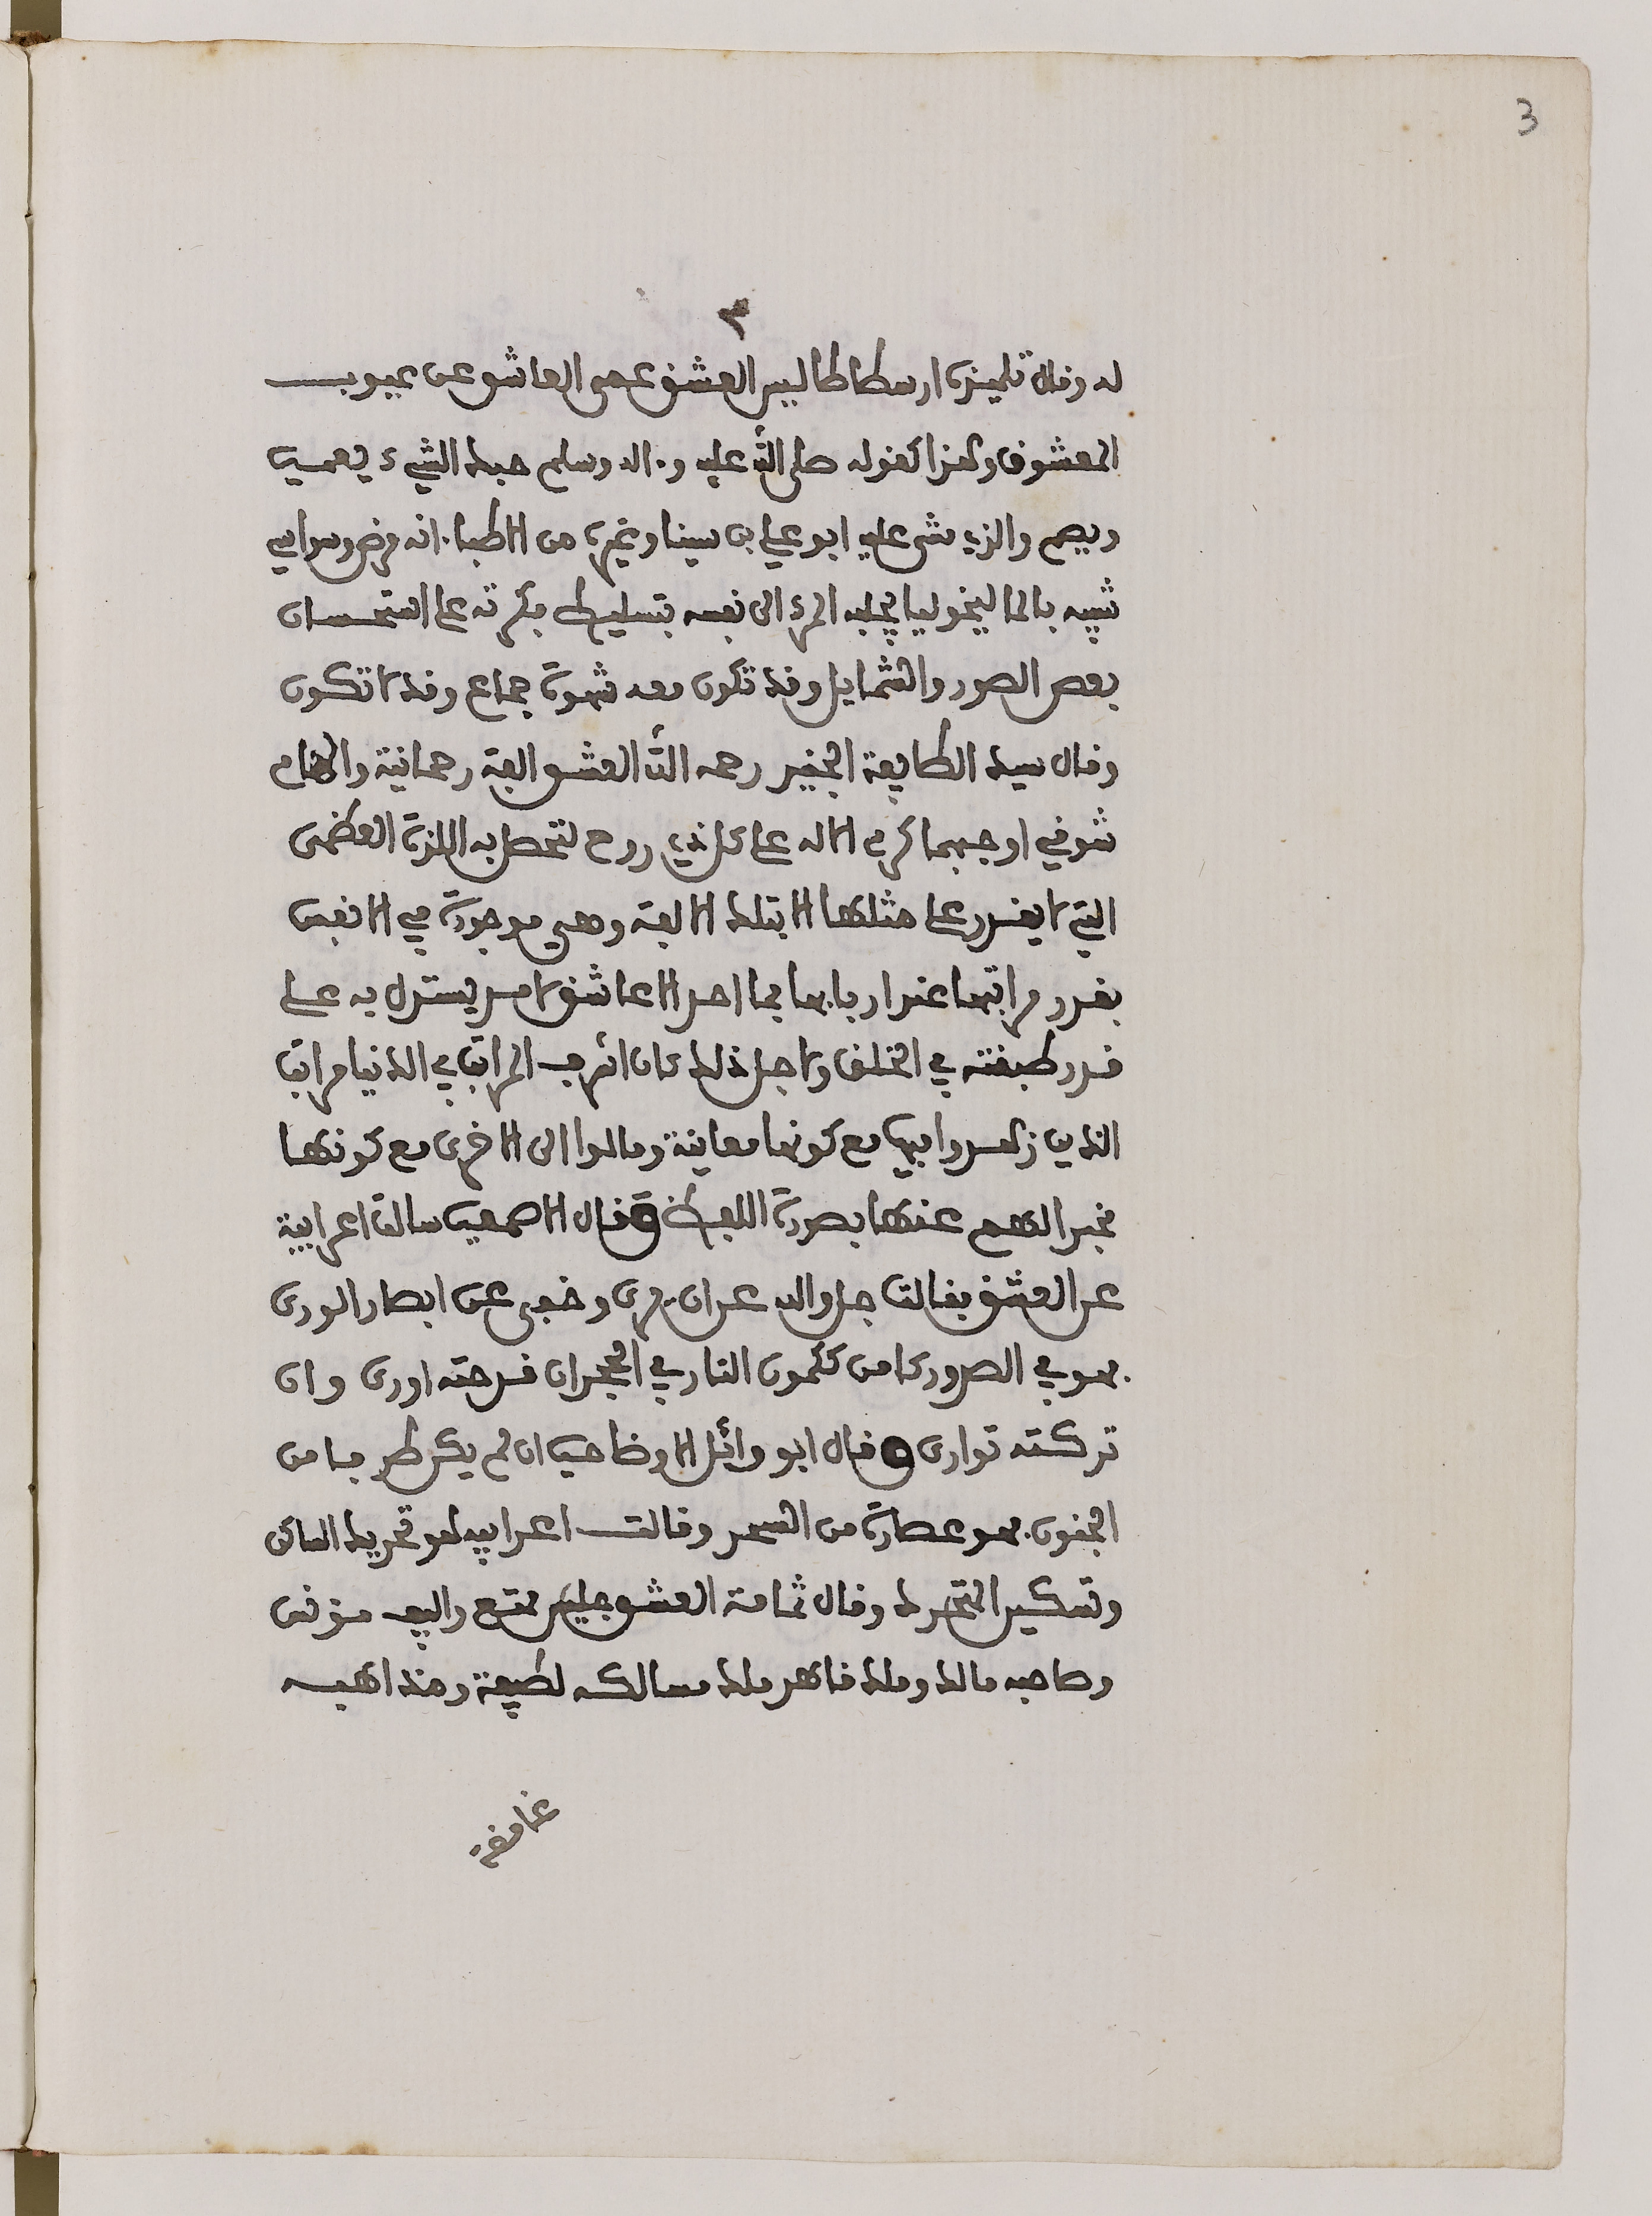 3
٣
له وقال تلميذه ارسطاطاليس العشق عمى العاشق عن عيوب
المعشوق وهذا كقوله صلى الله عليه وءاله وسلم حبك الشيء يعمي
ويصم والذي مشى عليه ابو علي بن سينا وغيره من الاطباء انه مرض وسواسي
شبيه بالماليخوليا يجلبه المرء الى نفسه بتسليط فكرته على استحسان
بعض الصور والشمايل وقد تكون معه شهوة جماع وقد لا تكون
وقال سيد الطايفة الجنيد رحمه الله العشق الفة رحمانية والهام
شوقي اوجبهما كرم الاله على كل ذي روح لتحصل به اللذة العظمى
التي لا يقدر على مثلها الا بتلك الالفة وهي موجودة في الانفس
بقدر مراتبها عند اربابها فما احد الا عاشق لامر يستدل به على
قدر طبقته في الخلق ولاجل ذلك كان اشرف المراتب في الدنيا مراتب
الذين زهدوا فيها مع كونها معاينة ومالوا الى الاخرى مع كونها
مخبرا لهم عنها بصورة اللفظ وقال الاصمعي سالت اعرابية
عن العشق فقالت جل والله عن ان يرى وخفي عن ابصار الورى
فهو في الصدور كامن ككمون النار في الحجر ان قدحته اورى وان
تركته توارى وقال ابو وائل الاوضاحي ان لم يكن طرفا من
الجنون فهو عصارة من السحر وقالت اعرابيه هو تحريك الساكن
وتسكين المتحرك وقال ثمامة العشق جليس ممتع واليف مؤنس
وصاحبه مالك وملك قاهر ملك مسالكه لطيفة ومذاهبه
غامضة